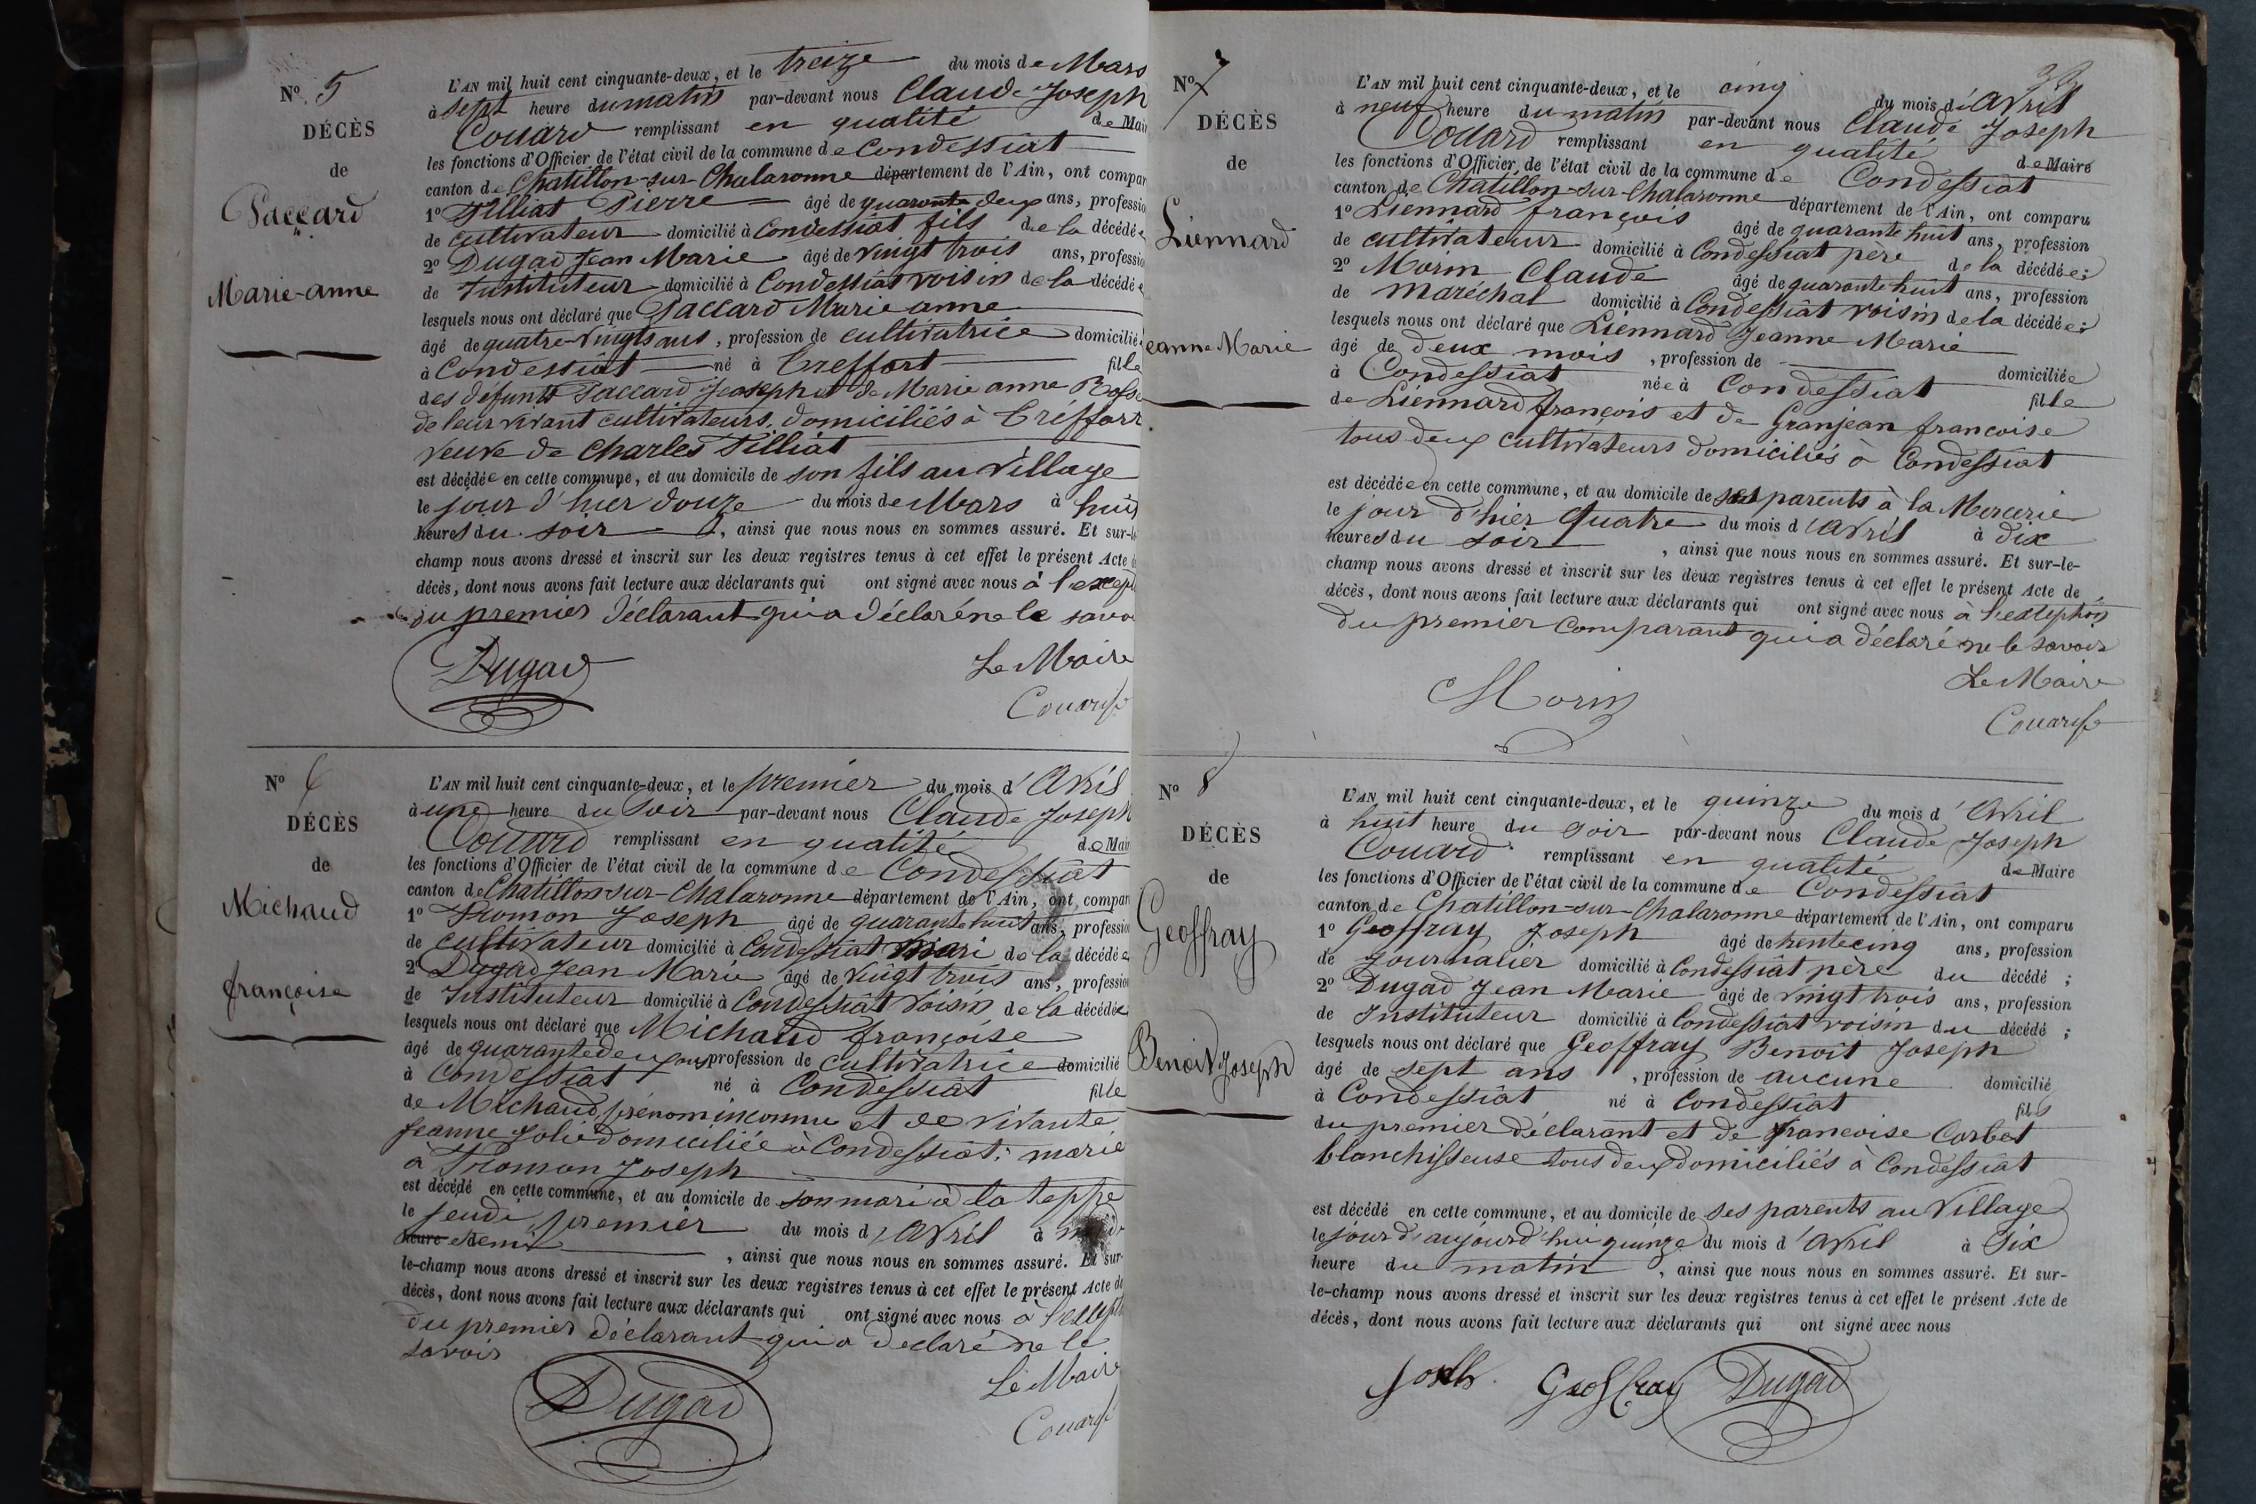 N° 5
DÉCÈS
de
Paccard
Marie-anne
L'AN mil huit cent cinquante-deux, et le treize du mois de Mars
à sept heure du matin par-devant nous Claude Joseph
Couard remplissant en qualité de Mair
les fonctions d'Officier de l'état civil de la commune de Condessiat
canton de Chatillon-sur-Chalaronne département de l'Ain, ont compar
1° Tilliat Pierre âgé de quarante deux ans, professio
de cultivateur domicilié à Condessiat fils de la décédée
2° Dugad Jean Marie âgé de vingt trois ans, professio
de Instituteur domicilié à Condessiat voisin de la décédée
lesquels nous ont déclaré que Paccard Marie anne
âgé de quatre-vingts ans, profession de cultivatrice domicilié
à Condessiat né à Treffort fille
des défunts Paccard Joseph et de Marie anne
de leur vivant cultivateurs, domiciliés à Tréffort
veuve de Charles Tilliat
est décédée en cette commune, et au domicile de son fils au village
le jour d'hier douze du mois de Mars à huit
heures du soir, ainsi que nous nous en sommes assuré. Et sur-le
champ nous avons dressé et inscrit sur les deux registres tenus à cet effet le présent Acte d
décès, dont nous avons fait lecture aux déclarants qui ont signé avec nous à l'excep
du premier déclarant qui a déclaré ne le savoi
Dugad
Le Maire
Couard
N° 6
DÉCÈS
de
Michaud
françoise
L'AN mil huit cent cinquante-deux, et le premier du mois d'Avril
à une heure du soir par-devant nous Claude Joseph
Couard remplissant en qualité de Mair
les fonctions d'Officier de l'état civil de la commune de Condessiat
canton de Chatillon-sur-Chalaronne département de l'Ain, ont compar
1° Joseph âgé de quarante huit ans, professio
de cultivateur domicilié à Condessiat mari de la décédée
2° Dugad Jean Marie âgé de vingt trois ans, professio
de Instituteur domicilié à Condessiat voisin de la décédée
lesquels nous ont déclaré que Michaud françoise
âgé de quarante deux ans, profession de cultivatrice domicilié
à Condessiat né à Condessiat fille
de Michaud, prénom inconnu et de vivante
Jeanne Jolie domiciliée à Condessiat; marié
à Joseph
est décédé en cette commune, et au domicile de son mari à la teppe
le jeudi premier du mois d'Avril à
heure et demi, ainsi que nous nous en sommes assuré. Et sur-
le-champ nous avons dressé et inscrit sur les deux registres tenus à cet effet le présent Acte de
décès, dont nous avons fait lecture aux déclarants qui ont signé avec nous à l'excepti
du premier déclarant qui a declaré ne le
savoir
Dugad
Le Maire
Couard
N° 7
DÉCÈS
de
Liennard
eanne Marie
L'AN mil huit cent cinquante-deux, et le cinq du mois d'Avril
à neuf heure du matin par-devant nous Claude Joseph
Couard remplissant en qualité de Maire
les fonctions d'Officier de l'état civil de la commune de Condessiat
canton de Chatillon-sur-Chalaronne département de l'Ain, ont comparu
1° Liennard françois âgé de quarante huit ans, profession
de cultivateur domicilié à Condessiat père de la décédée;
2° Morin Claude âgé de quarante huit ans, profession
de maréchal domicilié à Condessiat voisin de la décédée;
lesquels nous ont déclaré que Liennard Jeanne Marie
âgé de deux mois, profession de domiciliée
à Condessiat née à Condessiat fille
de Liennard françois et de Granjean francoise
tous deux cultivateurs domiciliés à Condessiat
est décédée en cette commune, et au domicile de ses parents à la Mercerie
le jour d'hier quatre du mois d'Avril à dix
heures du soir, ainsi que nous nous en sommes assuré. Et sur-le-
champ nous avons dressé et inscrit sur les deux registres tenus à cet effet le présent Acte de
décès, dont nous avons fait lecture aux déclarants qui ont signé avec nous à l'exception
du premier comparant qui a déclaré ne le savoir
Morin
Le Maire
Couard
N° 8
DÉCÈS
de
Geoffray
Benoit Joseph
L'AN mil huit cent cinquante-deux, et le quinze du mois d'Avril
à huit heure du soir par-devant nous Claude Joseph
Couard remplissant en qualité de Maire
les fonctions d'Officier de l'état civil de la commune de Condessiat
canton de Chatillon-sur-Chalaronne département de l'Ain, ont comparu
1° Geoffray Joseph âgé de trente cinq ans, profession
de Journalier domicilié à Condessiat père du décédé;
2° Dugad Jean Marie âgé de vingt trois ans, profession
de Instituteur domicilié à Condessiat voisin du décédé;
lesquels nous ont déclaré que Geoffray Benoit Joseph
âgé de sept ans, profession de aucune domicilié
à Condessiat né à Condessiat fils
du premier déclarant et de francoise Corbet
blanchisseuse tous deux domiciliés à Condessiat
est décédé en cette commune, et au domicile de ses parents au village
le jour d'aujourd'hui quinze du mois d'Avril à six
heure du matin, ainsi que nous nous en sommes assuré. Et sur-
le-champ nous avons dressé et inscrit sur les deux registres tenus à cet effet le présent Acte de
décès, dont nous avons fait lecture aux déclarants qui ont signé avec nous
Geoffray Dugad